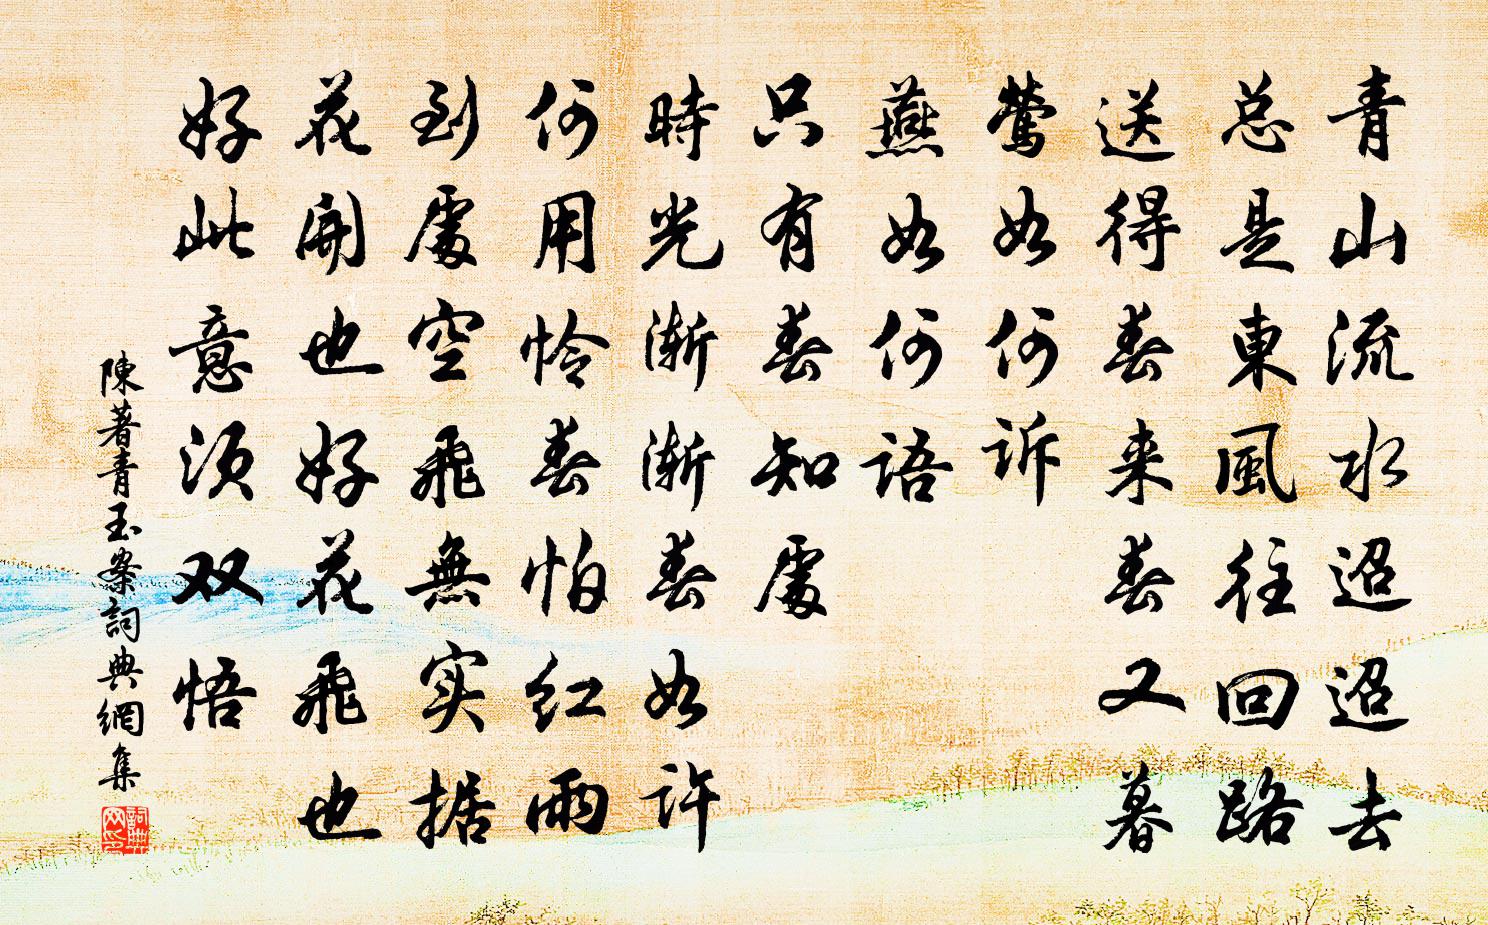 青山流水迢迢去
总是東風往回路
送得春来春又暮
鶯如何诉
燕如何語
只有春知處
時光渐渐春如许
何用怜春怕红雨
到處空飛無实据
花開也好花飛也
好此意须双悟
陳著青玉案詞典網集